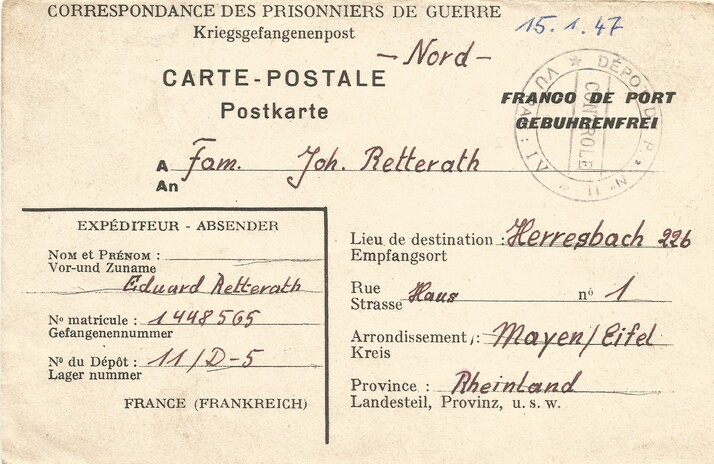 CORRESPONDANCE DES PRISONNIERS DE GUERRE
Kriegsgefangenenpost
15.1.47
- Nord -
CARTE-POSTALE
Postkarte
FRANCO DE PORT
GEBUHRENFREI
DÉPOT D. P. Nº 11
CONTROLE
VU
A
An
Fam. Joh. Retterath
EXPÉDITEUR - ABSENDER
NOM et PRÉNOM :
Vor-und Zuname
Eduard Retterath
Nº matricule : 1448565
Gefangenennummer
Nº du Dépôt : 11/D-5
Lager nummer
FRANCE (FRANKREICH)
Lieu de destination : Herresbach 22b
Empfangsort
Rue
Strasse Haus nº 1
Arrondissement : Mayen/Eifel
Kreis
Province : Rheinland
Landesteil, Provinz, u. s. w.